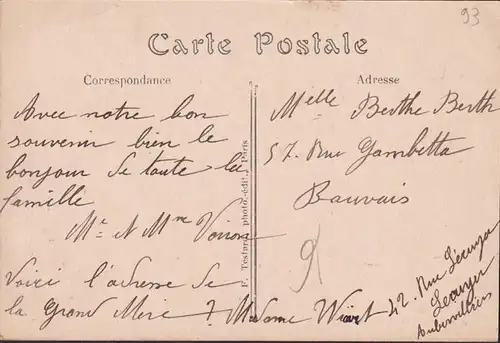 93
Carte Postale
Correspondance
Adresse
Avec notre bon
souvenir bien le
bonjour de toute la
famille
Mr et Mme
Voici l'adresse de
la Grand Mère
Madame
42 Rue
Aubervilliers
Melle Berthe Berth
57. Rue Gambetta
Bauvais
F. Testard, photo.-édit., Paris